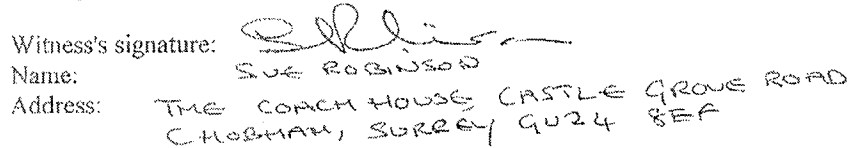 Witness's signature:
Name: SUE ROBINSON
Address: THE COACH HOUSE, CASTLE GROVE ROAD
CHOBHAM, SURREY GU24 8EF